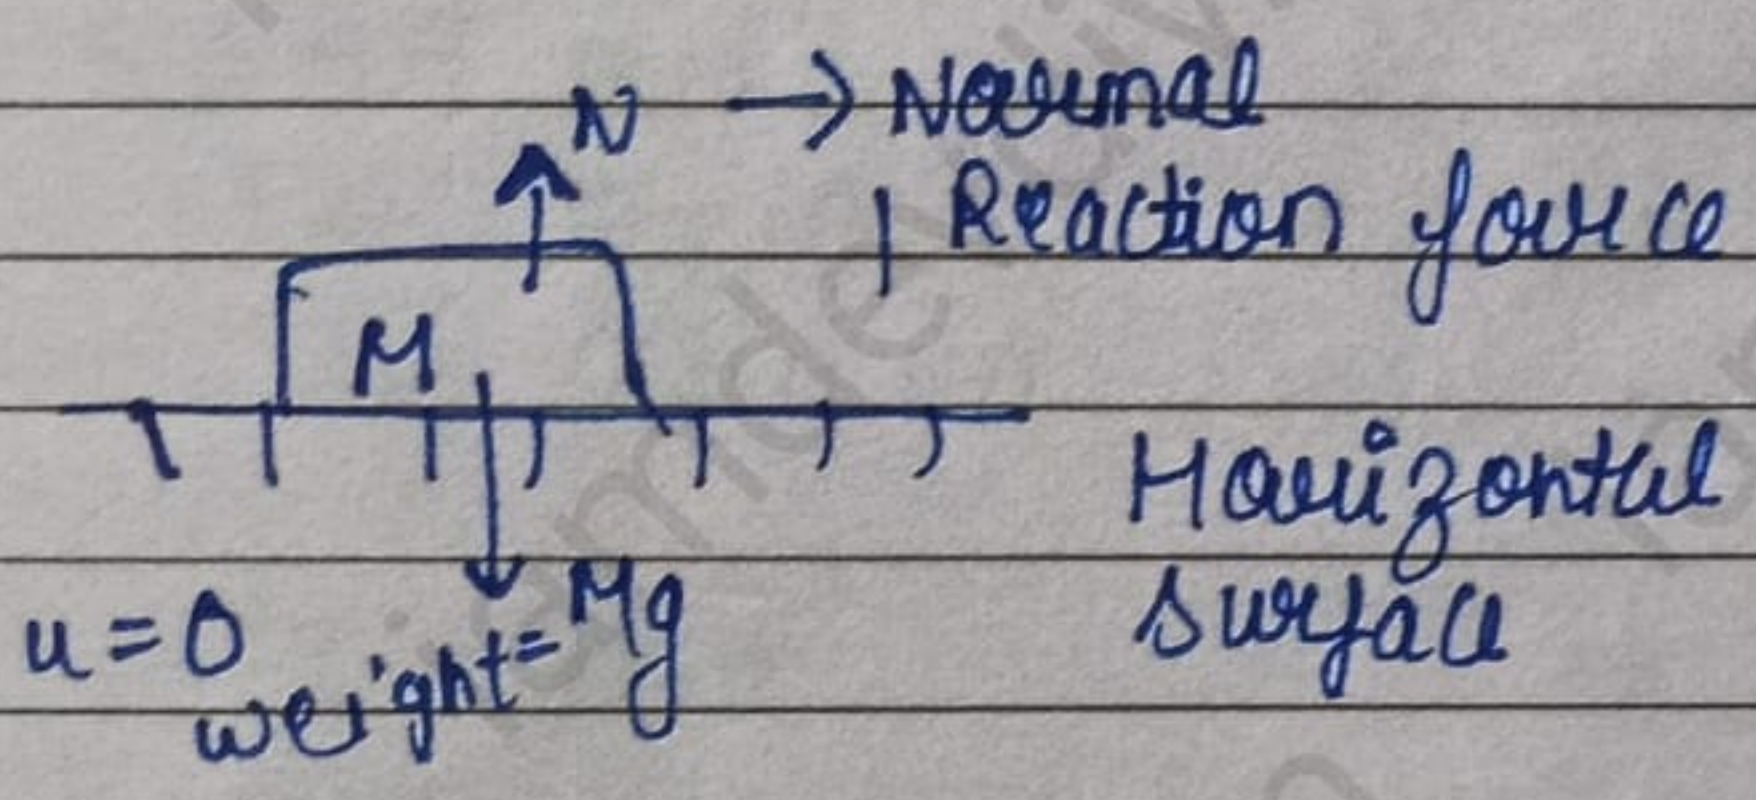 N → Normal
Reaction force
M
Horizontal
surface
u = 0
weight = Mg